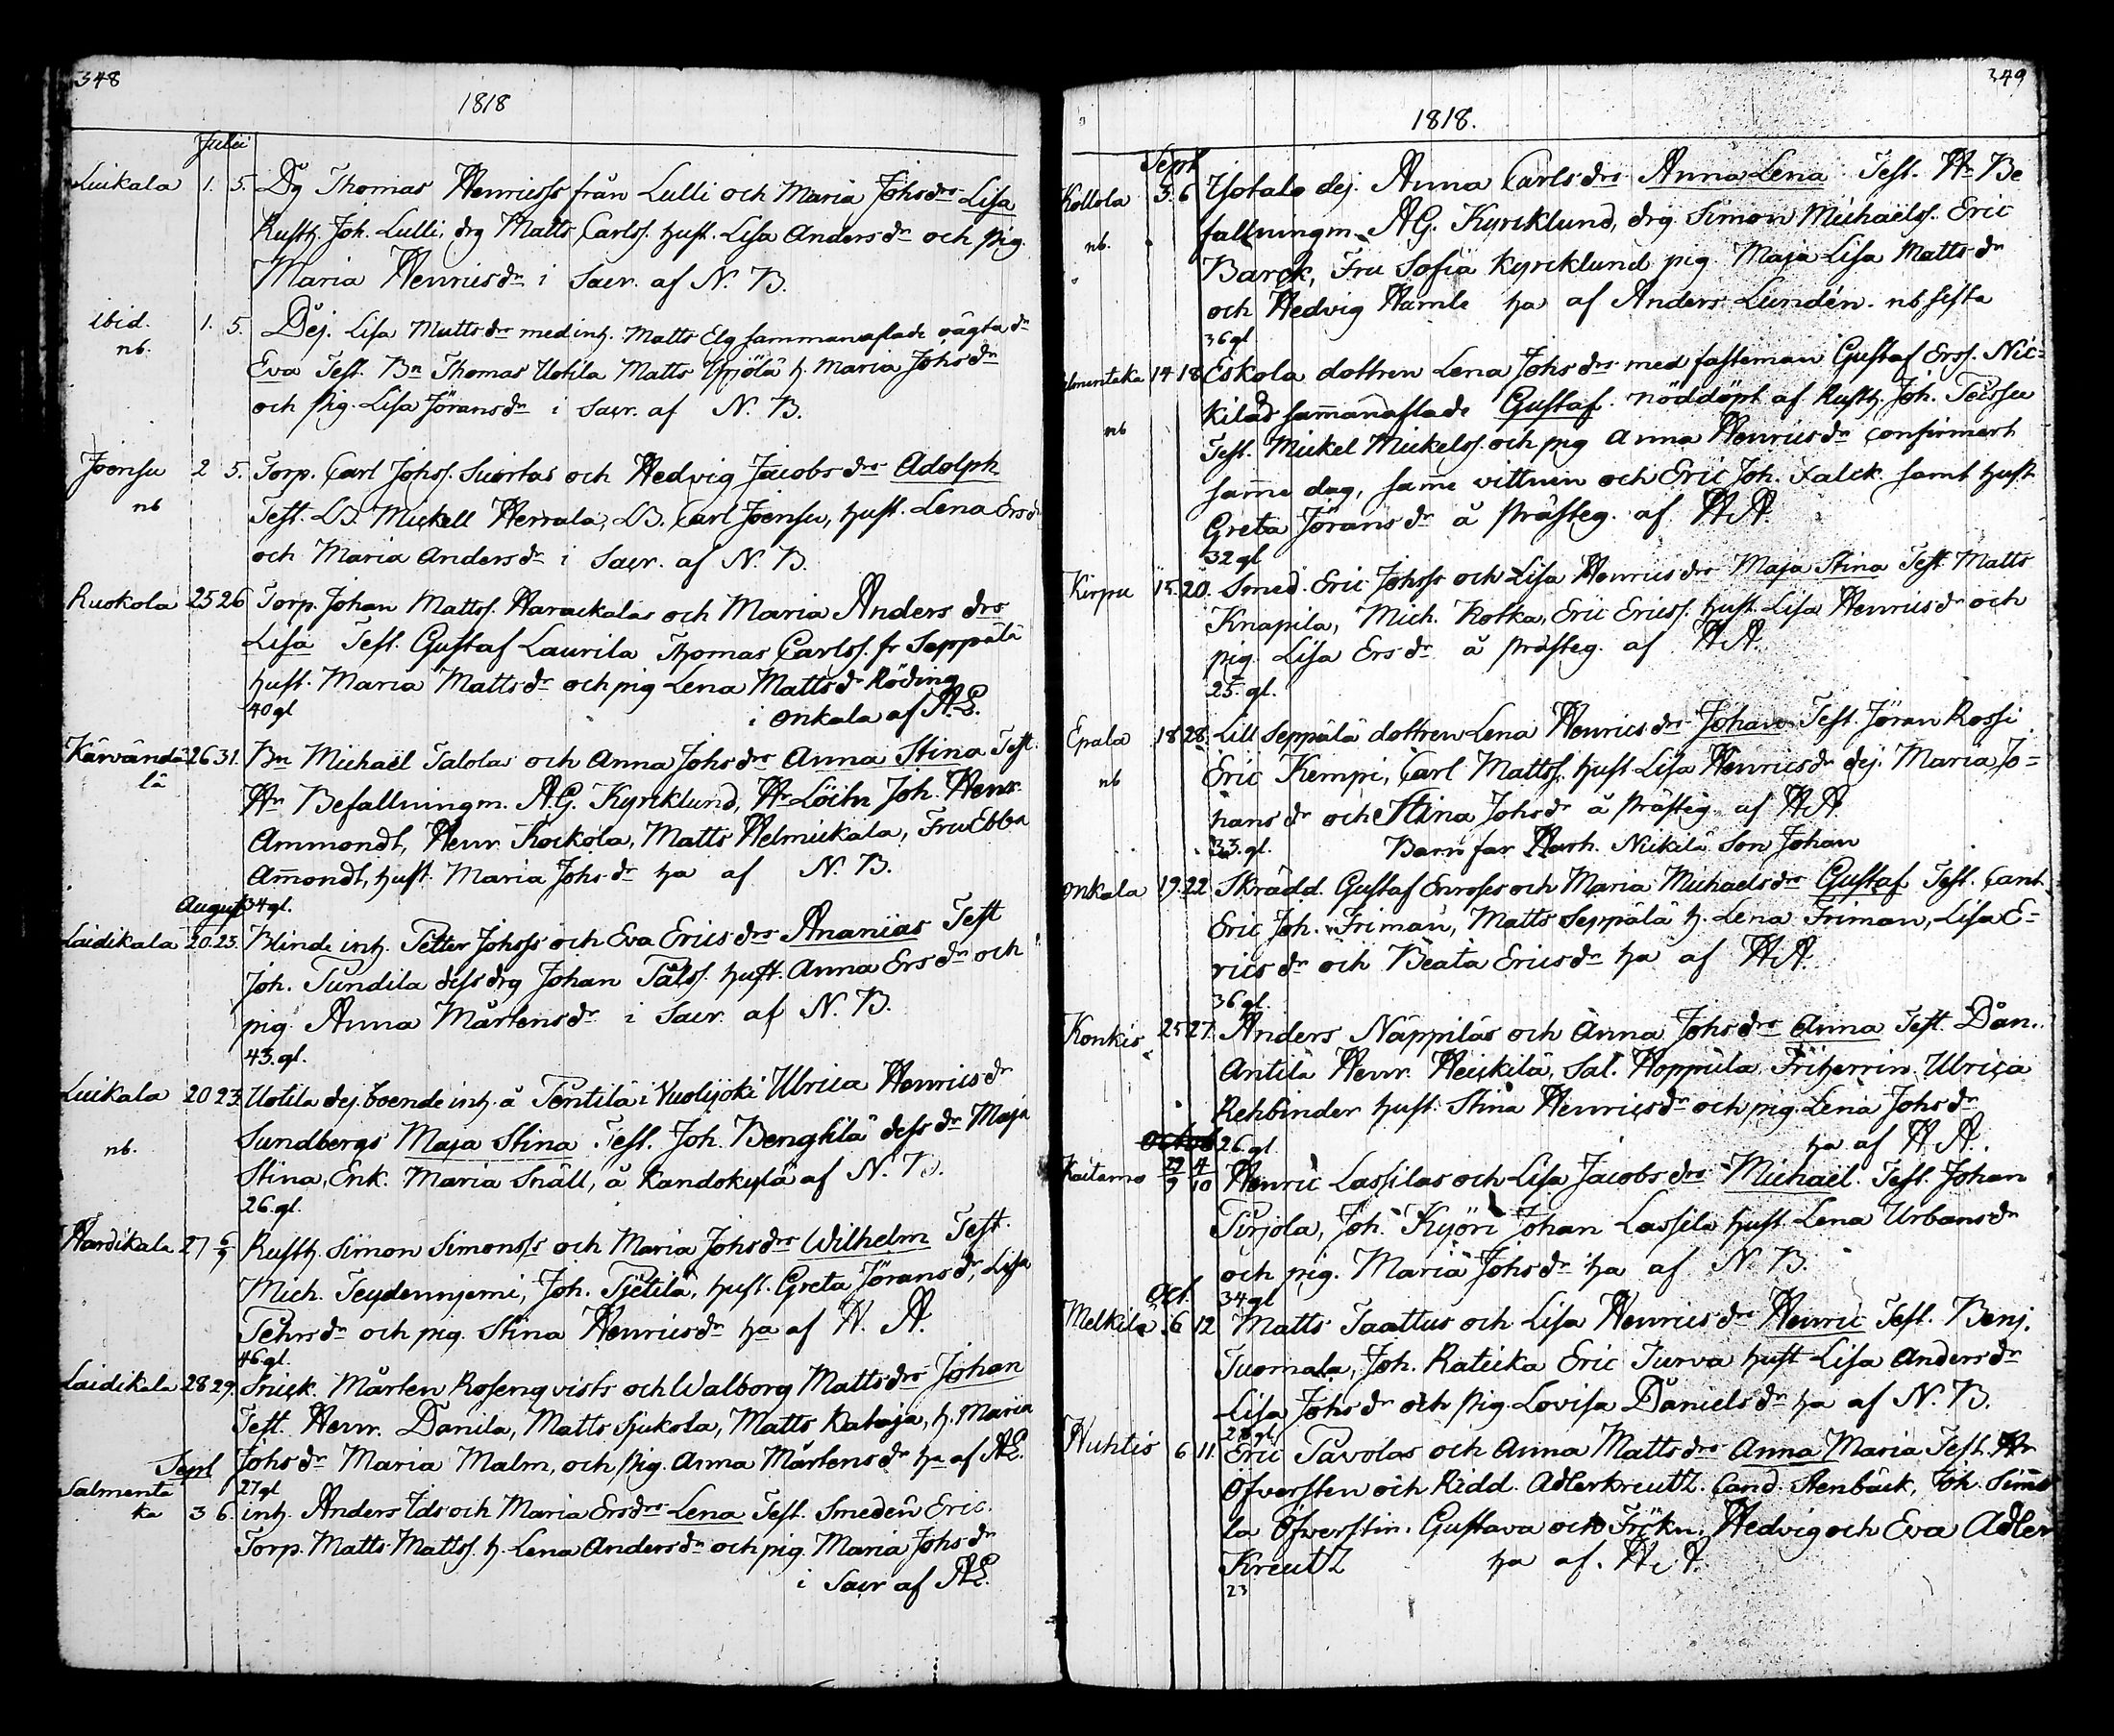 348
1818
Julii
Luikala 1. 5. Dg Thomas Henricss från Lulli och Maria Johsdrs Lisa
Rusth. Joh. Lulli, drg Matts Carlss. hust. Lisa Andersdr och pig.
Maria Henricsdr i Sacr. af N. B.
ibid. 1. 5. Dej. Lisa Mattsdrs med inh. Matts Elg sammanaflade oägta dr
nb.
Eva Test. Bn Thomas Uotila Matts Yrjölä h. Maria Johsdr
och pig. Lisa Jöransdr i Sacr. af N. B.
Joensu 2 5. Torp. Carl Johss. Suortas och Hedvig Jacobsdrs Adolph
nb
Test. LB. Mickell Herrala, LB. Carl Joensu, hust. Lena Ersdr
och Maria Andersdr i Sacr. af N. B.
Ruokola 25 26 Torp. Johan Mattss. Harackalas och Maria Anders drs
Lisa Test. Gustaf Laurila Thomas Carlss. fr Seppälä
hust. Maria Mattsdr och pig Lena Mattsdr Röding
40 gl i Onkala af AL.
Kärvändä 26 31. Bn Michaël Talolas och Anna Johsdrs Anna Stina Test.
lä
Hr Befallningm. A.G. Kyrcklund, Hr Löitn Joh. Henr.
Ammondt, Henr. Kockola, Matts Helmickala, Fru Ebba
Amondt, hust. Maria Johsdr ha af N. B.
August 34 gl.
Laidikala 20. 23. Blinde inh. Petter Johss och Eva Ericsdrs Ananias Test
Joh. Pundila dess drg Johan Pålss. hust. Anna Ersdr och
pig. Anna Mårtensdr i Sacr. af N. B.
43. gl.
Luikala 20 23. Uotila dej. boende inh. å Pentilä i Vuolijoki Ulrica Henricsdr
Sundbergs Maja Stina Test. Joh. Bengtilä dess dr Maja
nb.
Stina, Enk. Maria Snäll, å Kandokylä af N. B.
26. gl.
Hardikala 27 6/9 Rusth. Simon Simonss och Maria Johsdrs Wilhelm Test.
Mich. Teydennjemi, Joh. Pjetilä, hust. Greta Jöransdr, Lisa
Pehrsdr och pig. Stina Henricsdr ha af H. A.
46. gl.
Laidikala 28 29. Snick. Mårten Rosenqvists och Walborg Mattsdrs Johan
Test. Henr. Danila, Matts Sjukola, Matts Kataja, h. Maria
Johsdr Maria Malm, och pig. Anna Mårtensdr ha af AL.
Sept 27 gl
Salmenta
ka 3 6. inh. Anders Ids och Maria Ersdrs Lena Test. Smeden Eric
Torp. Matts Mattss. h. Lena Andersdr och pig. Maria Johsdr
i Sacr af AL.
349
1818.
Sept
Kollola 5. 6 Ysotalo dej. Anna Carlsdrs Anna Lena Test. Hr Be
fallningm. A.G. Kyrcklund, drg. Simon Michaelss. Eric
nb.
Barck, Fru Sofia Kyrcklund pig. Maja Lisa Mattsdr
och Hedvig Hamle ha af Anders Lundén. nb sista
36 gl
Salmentaka 14 18 Eskola dottren Lena Johsdrs med fästeman Gustaf Erss. Nic=
kilas samanaflade Gustaf. nöddöpt af Rusth. Joh. Teissu
nb
Test. Mickel Mickelss. och pig Anna Henricsdr confirmert
same dag, same vittnen och Eric Joh. Falck samt hust
Greta Jöransdr å Prästeg. af HA
32 gl
Kirpu 15. 20. Smed. Eric Johss och Lisa Henricsdrs Maja Stina Test Matts
Knapila, Mich. Kotka, Eric Ericss. hust. Lisa Henricsdr och
pig. Lisa Ersdr å Prästeg. af HA.
25. gl.
Epala 18 28. Lill Seppälä dottren Lena Henricsdrs Johan Test. Jöran Rossi
Eric Kempi, Carl Mattss. hust Lisa Henricsdr dej. Maria Jo=
nb
hansdr och Stina Johsdr å Prästeg. af HA.
33. gl. Barnfar Harh. Nickilä Son Johan
Onkala 19. 22. Skrädd. Gustaf Enroses och Maria Michaelsdrs Gustaf Test. Cant.
Eric Joh. Friman, Matts Seppälä h. Lena Friman, Lisa E=
ricsdr och Beata Ericsdr ha af HA.
36 gl.
Konkio 25 27. Anders Näppiläs och Anna Johsdrs Anna Test. Dan.
Antilä Henr. Heickilä, Sal. Hoppula Friherrin Ulrica
Rehbinder hust. Stina Henricsdr och pig. Lena Johsdr
26 gl. ha af HA.
Kaitamo 29/9 4/10 Henric Lassilas och Lisa Jacobsdrs Michaël. Test. Johan
Pirjola, Joh. Kyöri Johan Lassila hust. Lena Urbansdr
och pig. Maria Johsdr ha af N. B.
Oct. 34 gl
Melkilä 6 12 Matts Taattus och Lisa Henricsdr Henric Test. Benj.
Tuomala, Joh. Raticka Eric Turva hust Lisa Andersdr
Lisa Johsdr och pig. Lovisa Danielsdr ha af N. B.
28 gl
Huhtis 6 11. Eric Pavolas och Anna Mattsdrs Anna Maria Test. Hr
Öfversten och Ridd. Adlerkreutz. Cand. Stenbäck, Joh. Simo
la Öfverstin. Gustava och Frökn. Hedvig och Eva Adler
Kreutz ha af. HA.
23